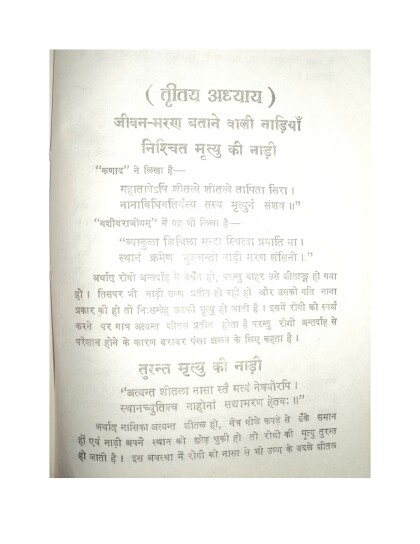 ( तृतिय अध्याय )
जीवन-मरण बताने वाली नाड़ियाँ
निश्चित मृत्यु की नाड़ी
"कणाद" ने लिखा है—
महातापेऽपि शीतलत्वं शीतले तापिता सिरा ।
नानाविधिगतिर्यस्य तस्य मृत्युर्न संशय ॥"
में यह भी लिखा है—
"व्याकुला शिथिला मन्दा स्थित्वा प्रयाति वा ।
स्थानं क्रमेण मुञ्चन्ती नाड़ी मरण शंसिनी ।"
अर्थात् रोगी अन्तर्दाह से बेचैन हो, परन्तु बाहर उसे शीताङ्ग हो गया
हो । तिसपर भी नाड़ी उष्ण प्रतीत हो रही हो और उसकी गति नाना
प्रकार की हो तो निःसन्देह उसकी मृत्यु हो जाती है । इसमें रोगी को स्पर्श
करने पर गात्र अत्यन्त शीतल प्रतीत होता है परन्तु रोगी अन्तर्दाह से
परेशान होने के कारण बराबर पंखा झलने के लिए कहता है ।
तुरन्त मृत्यु की नाड़ी
"अत्यन्त शीतला नासा नेत्रयोरपि ।
स्थानच्युतिश्च हेतवः ॥"
अर्थात् नासिका अत्यन्त शीतल हो, नेत्र गीले कपड़े से ढँके समान
हों एवं नाड़ी अपने स्थान को छोड़ चुकी हो तो रोगी की मृत्यु तुरन्त
हो जाती है । इस अवस्था में रोगी की नासा से भी उष्ण के बदले शीतल